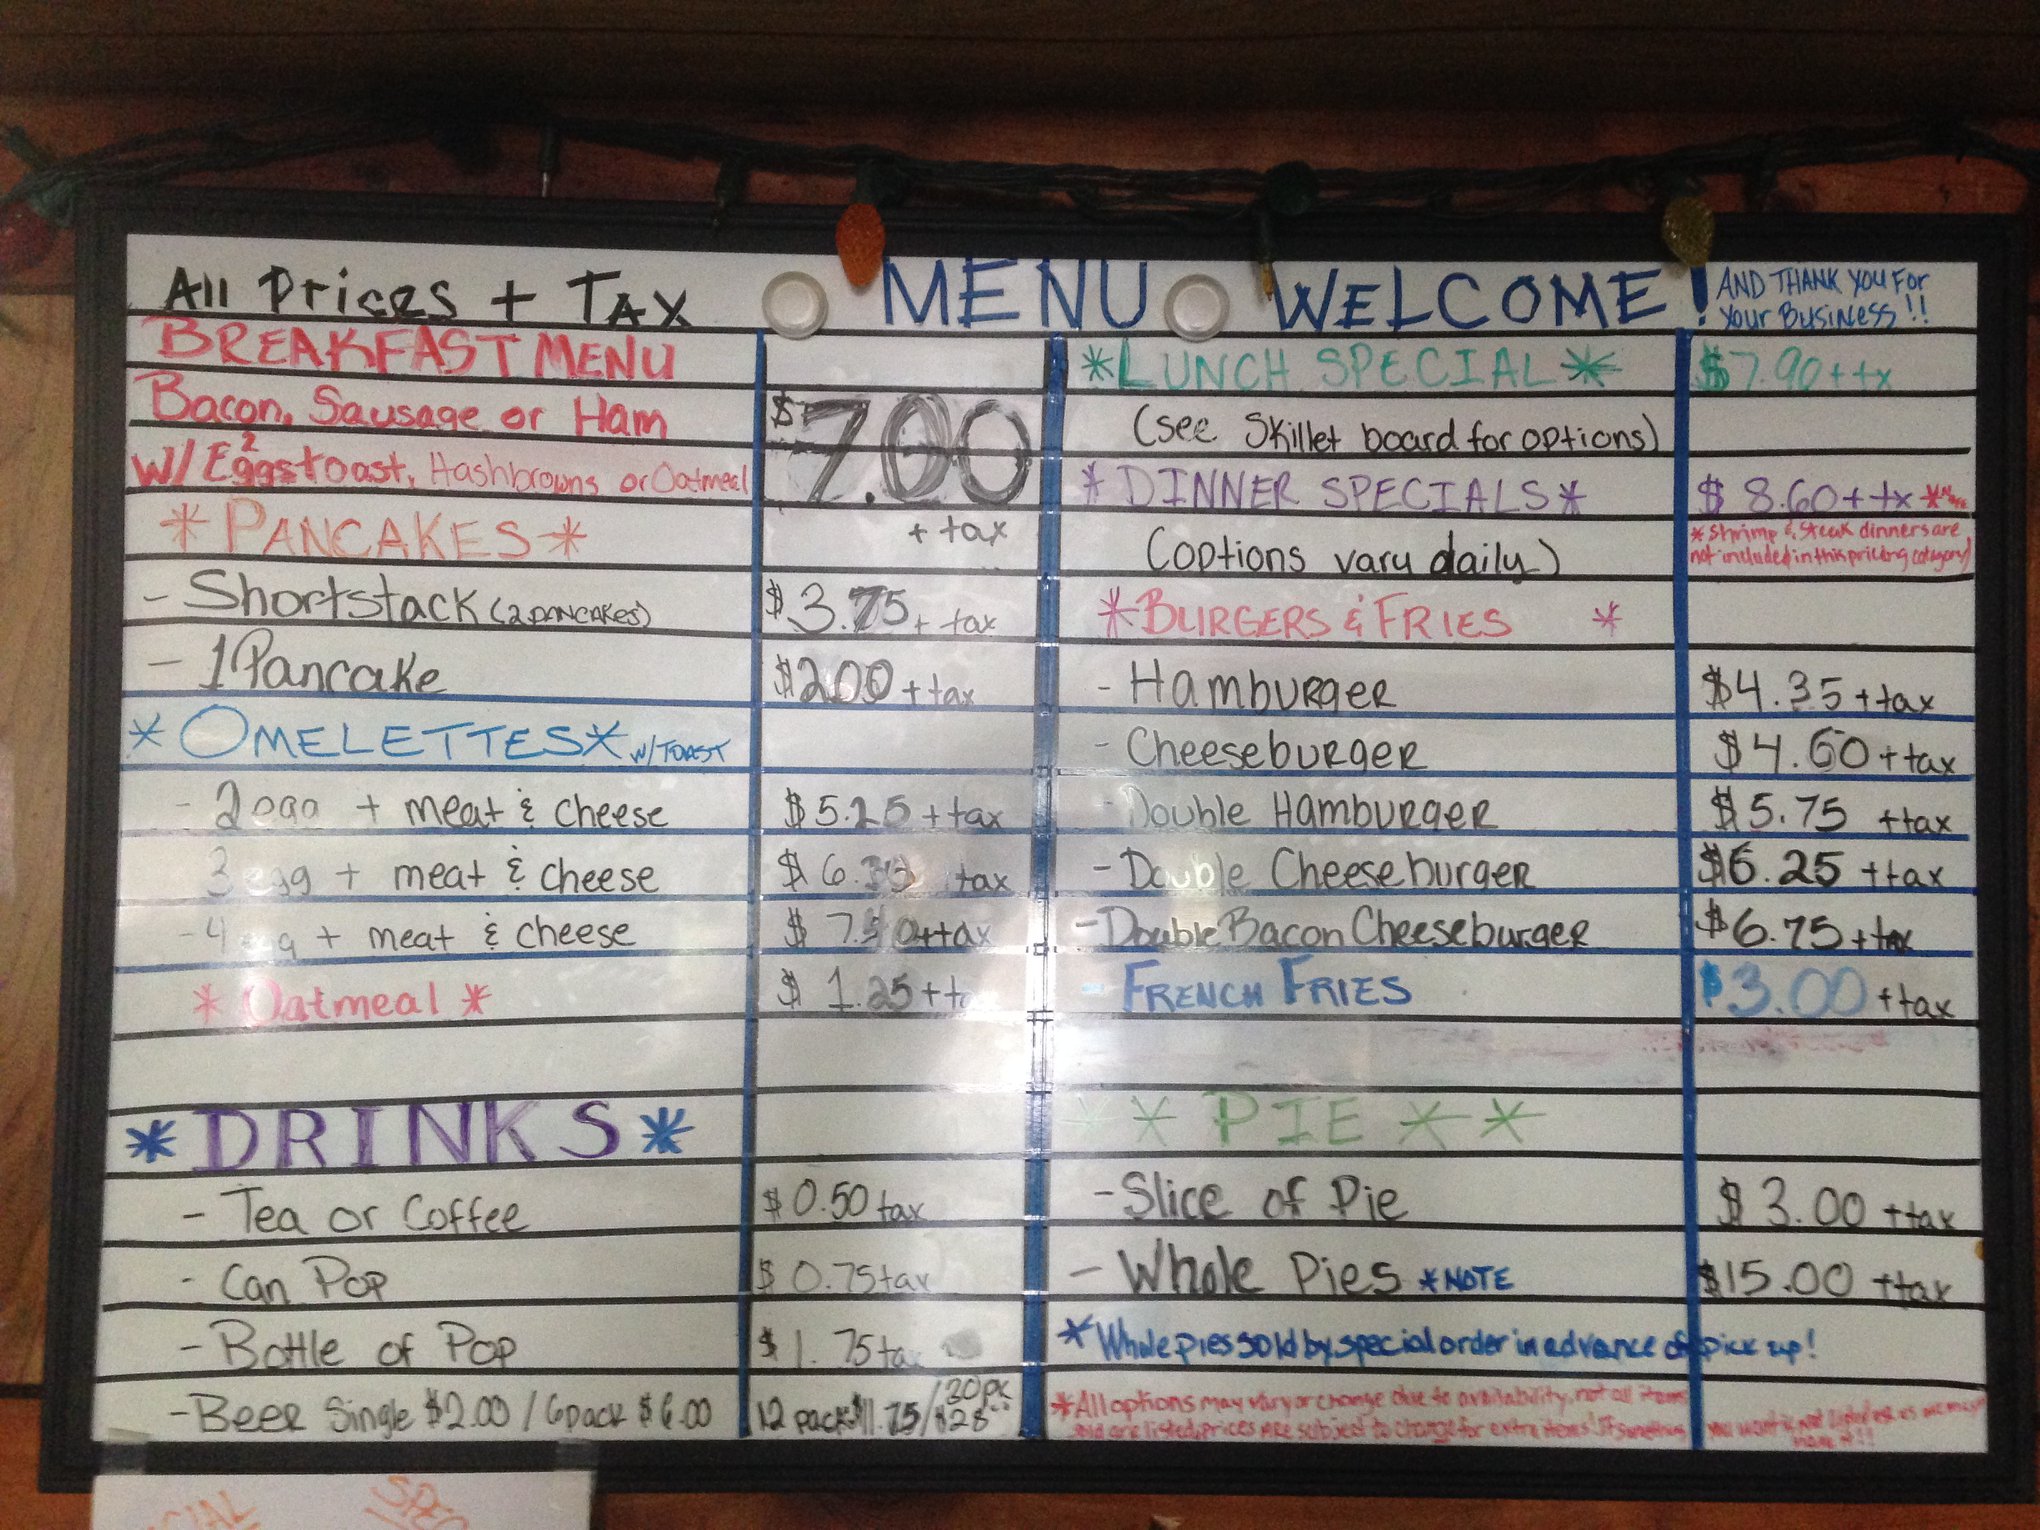 All Prices + Tax MENU WELCOME! AND THANK YOU FOR
YOUR BUSINESS!!
BREAKFAST MENU
Bacon, Sausage or Ham
w/ 2 Eggs toast, Hashbrowns or Oatmeal
$7.00
+ tax
*PANCAKES*
- Shortstack (2 PANCAKES) $3.75 + tax
- 1 Pancake $2.00 + tax
*OMELETTES* w/ TOAST
- 2 egg + meat & cheese $5.25 + tax
3 egg + meat & cheese $6. tax
- 4 egg + meat & cheese $ + tax
*Oatmeal* $1.25 + t
*DRINKS*
- Tea or Coffee $0.50 tax
- Can Pop $0.75 tax
- Bottle of Pop $1.75 ta
- Beer Single $2.00 / 6 pack $6.00 12 pack $11.75 / 30 pk $28
*LUNCH SPECIAL* $7.90 + tx
(see Skillet board for options)
*DINNER SPECIALS* $8.60 + tx *
(options vary daily)
*Shrimp & Steak dinners are
not included in this pricing category)
*BURGERS & FRIES *
- Hamburger $4.35 + tax
- Cheeseburger $4.60 + tax
- Double Hamburger $5.75 + tax
- Double Cheeseburger $6.25 + tax
- Double Bacon Cheeseburger $6.75 + tax
- FRENCH FRIES $3.00 + tax
* * PIE * *
- Slice of Pie $3.00 + tax
- Whole Pies *NOTE $15.00 + tax
*Whole pies sold by special order in advance of pick up!
*All options may vary or change due to availability, not all items
sold are listed, prices are subject to change for extra items! If something you want is not listed ask us we may
have it!!
CIAL SPEC